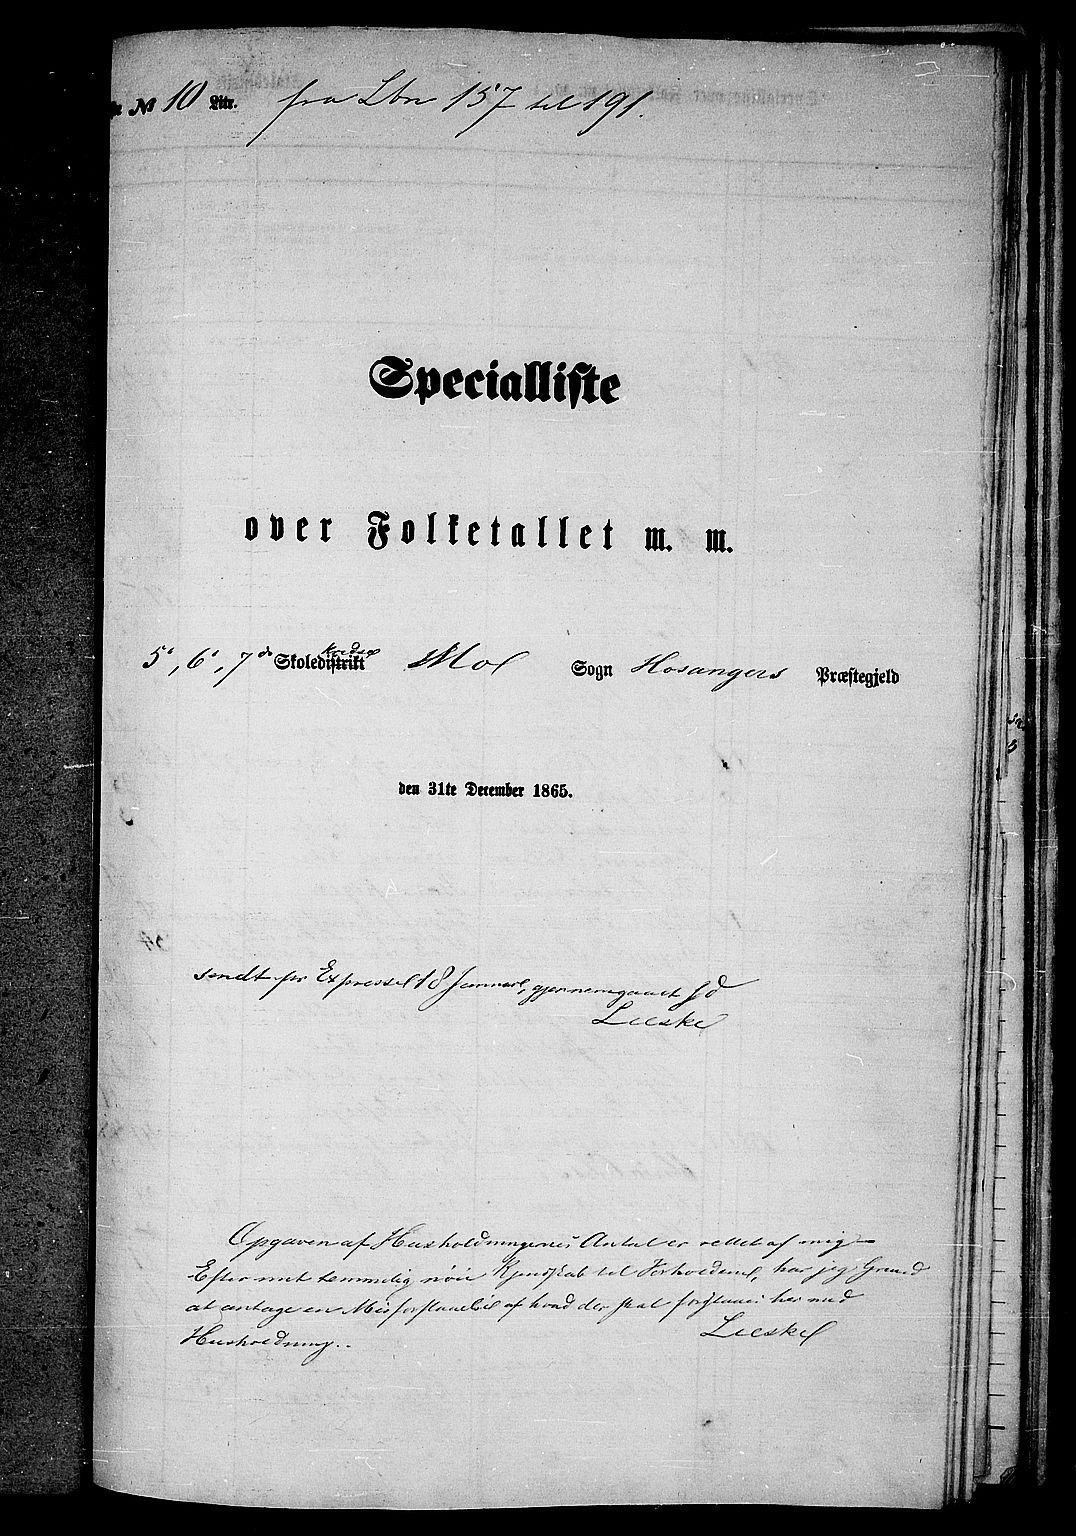 № 10 Litr. fra Lbn 157 til 191.
Specialliste
over Folketallet m. m.
5te, 6te, 7de Skoledistrikt kredse Mo Sogn Hosangers Præstegjeld
den 31te December 1865.
sendt pr Expresse 18 Januar, gjennemgaaet
Opgaven af Husholdningernes Antal er rettet af mig –
Efter mit temmelig nøie Kjendskab til Forholdene, har jeg Grund
at antage en Misforstaaelse af hvad der skal forstaaes her ved
Husholdning..